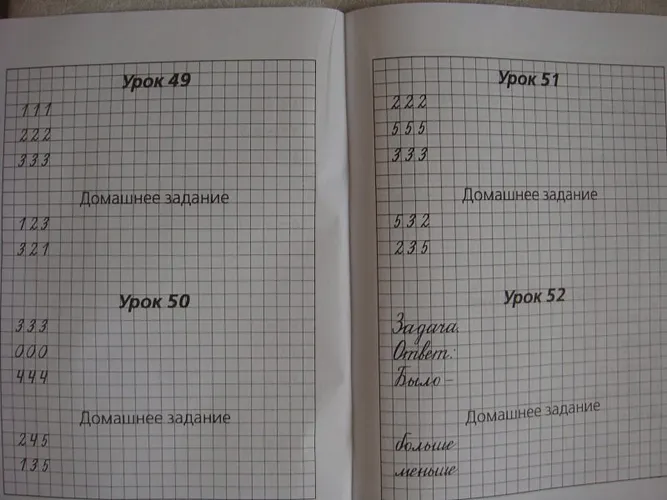 Урок 49
1 1 1
2 2 2
3 3 3
Домашнее задание
1 2 3
3 2 1
Урок 50
3 3 3
0 0 0
4 4 4
Домашнее задание
2 4 5
1 3 5
Урок 51
2 2 2
5 5 5
3 3 3
Домашнее задание
5 3 2
2 3 5
Урок 52
Задача.
Ответ:
Было –
Домашнее задание
больше
меньше